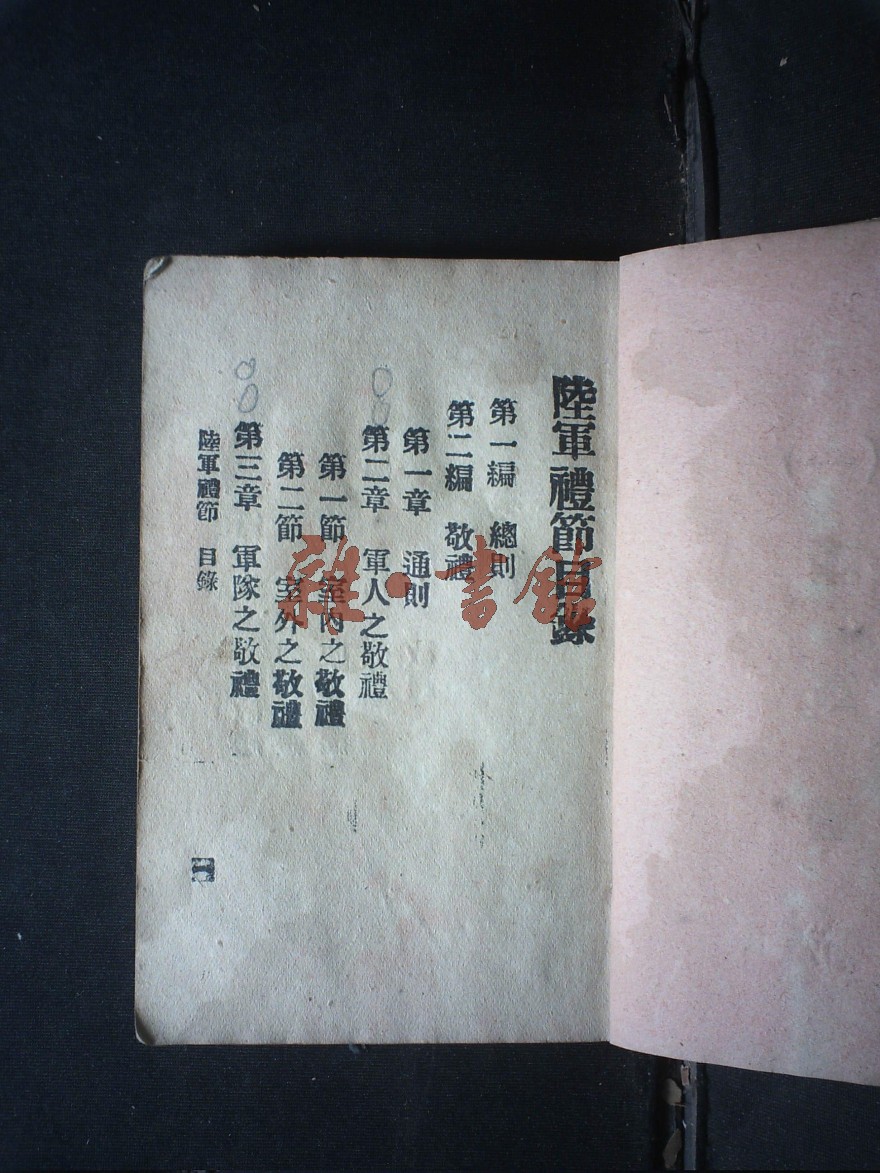 陸軍禮節目錄
第一編　總則
第二編　敬禮
第一章　通則
第二章　軍人之敬禮
第一節　室內之敬禮
第二節　室外之敬禮
第三章　軍隊之敬禮
陸軍禮節　目錄
一
雜·書館